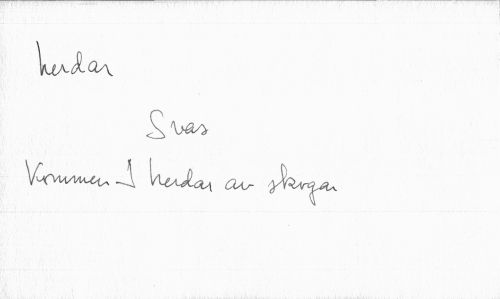 herdar
Svas
Kommen I herdar av skogar